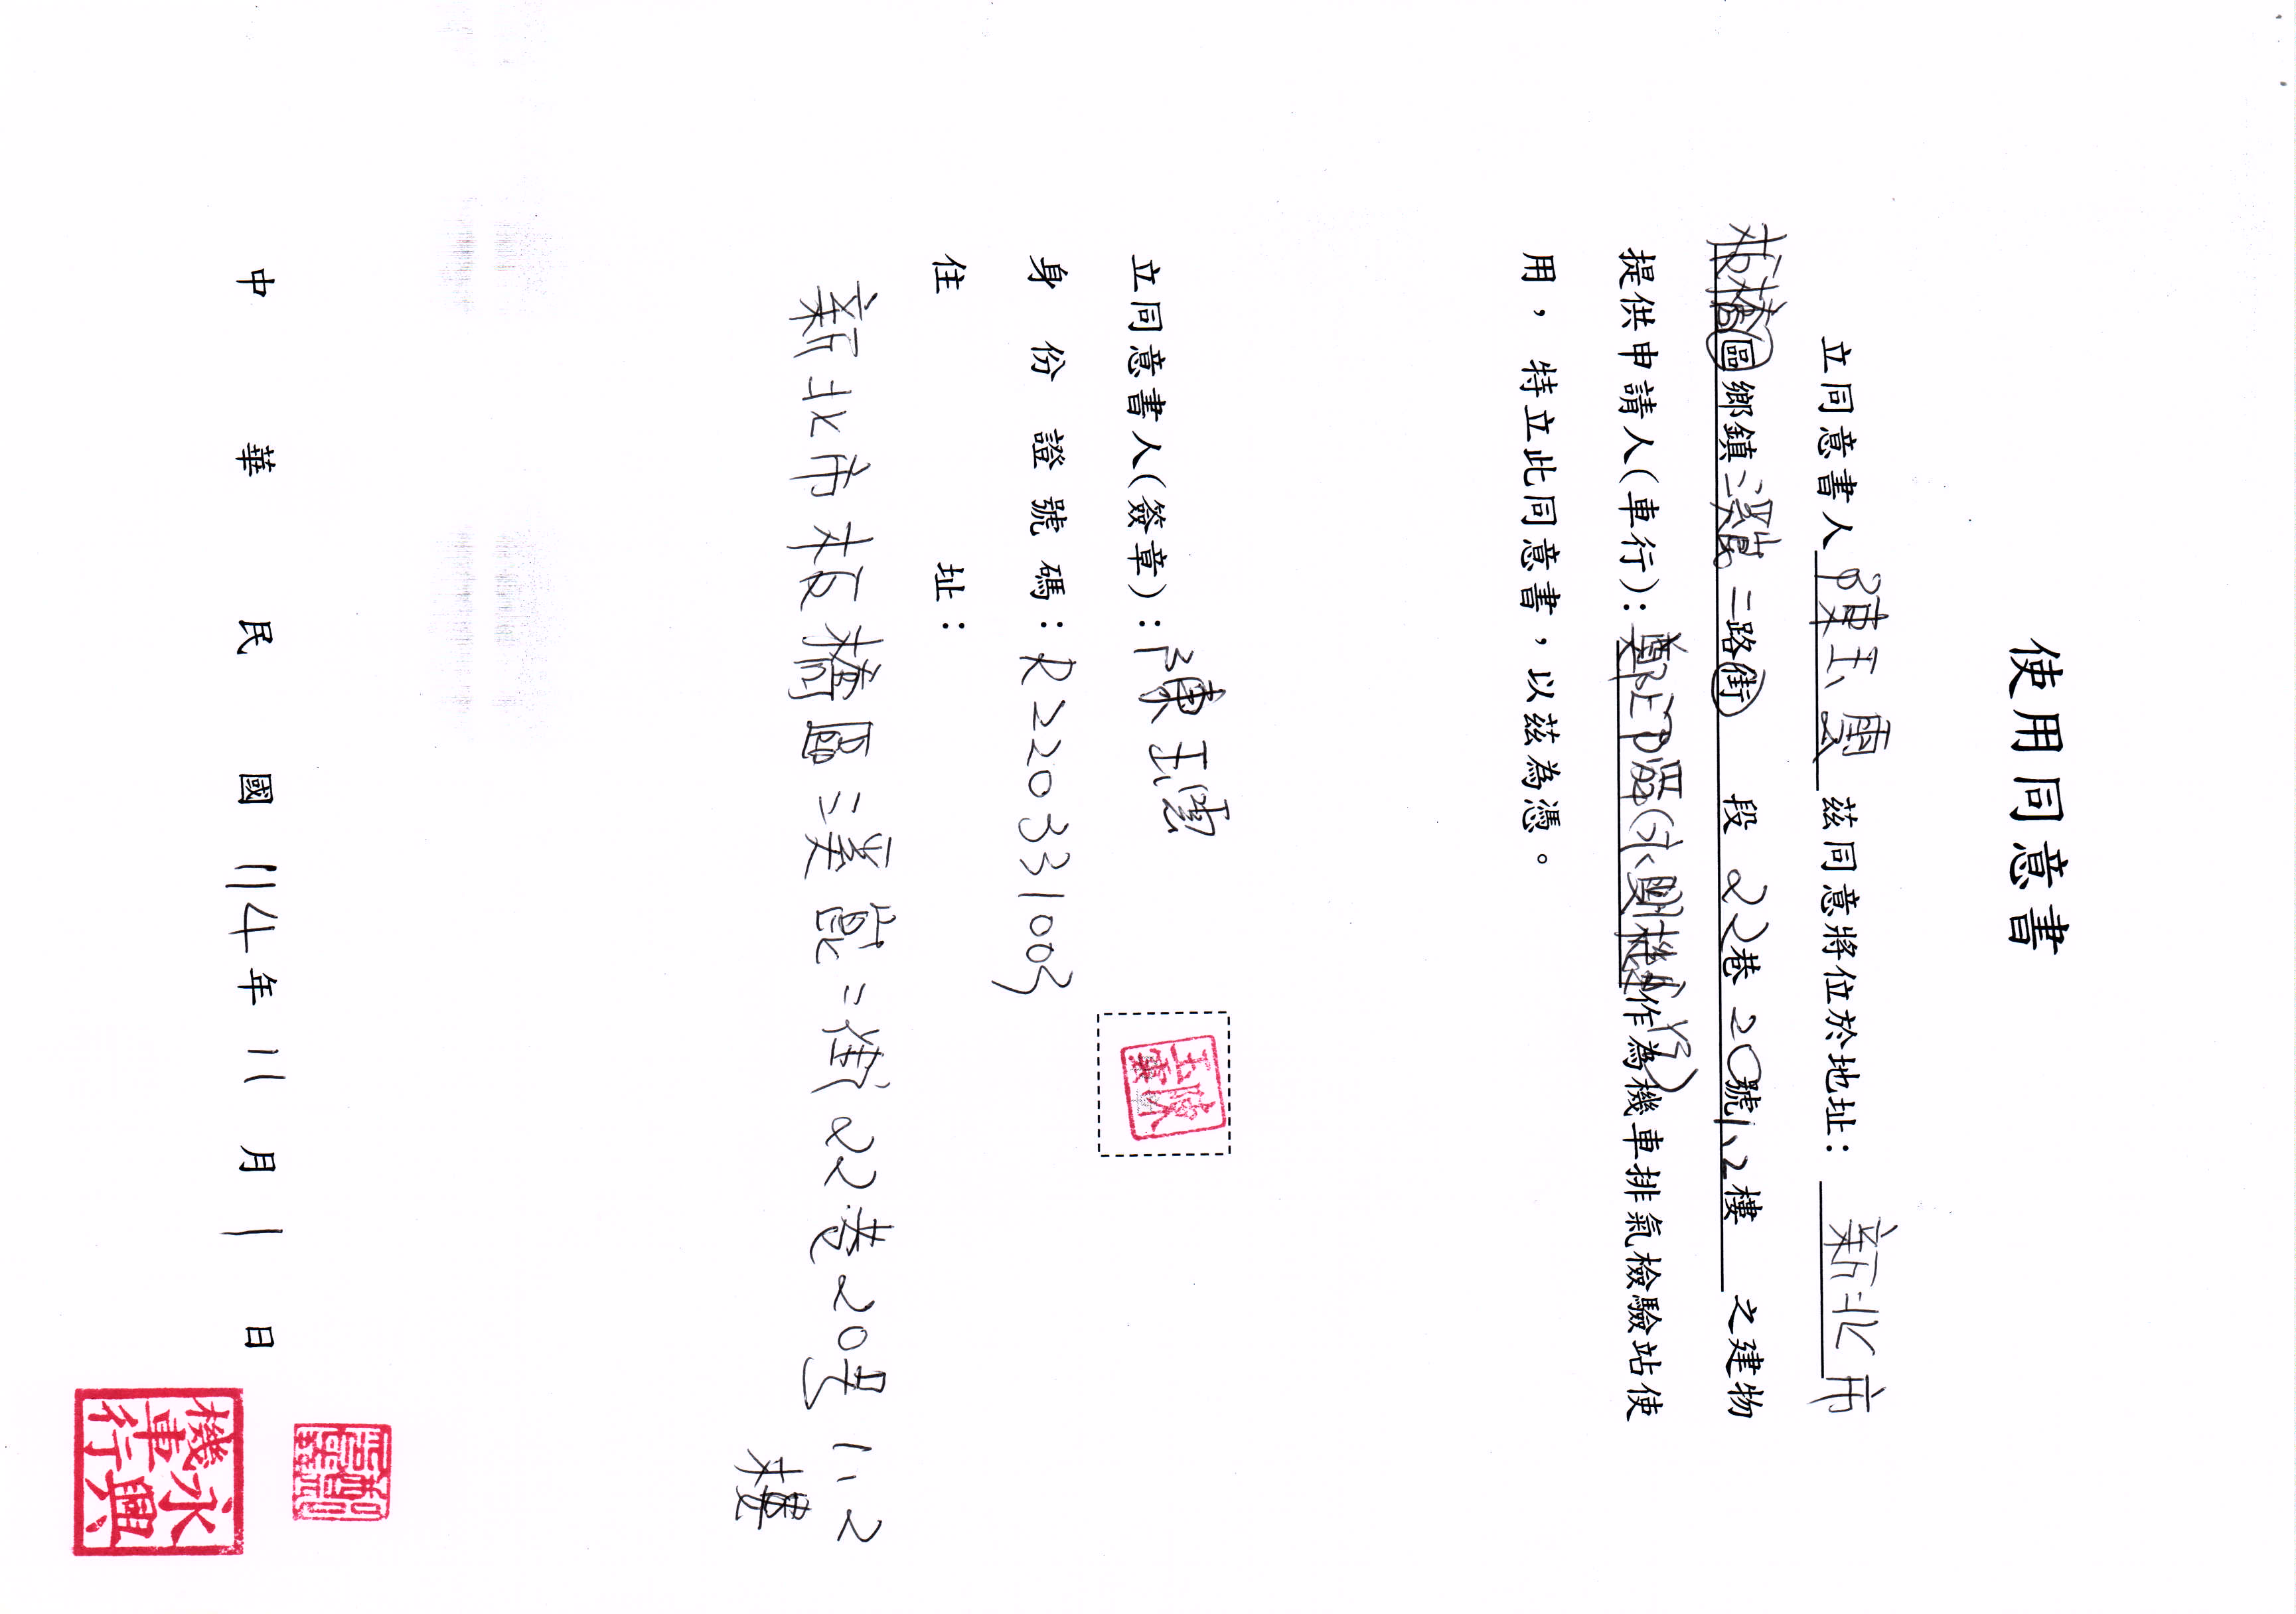 使用同意書
立同意書人陳玉雲茲同意將位於地址：新北市
板橋區鄉鎮三溪崑二路街 段 22巷 20號1、2樓 之建物
提供申請人(車行)：鄭昭(永興機車行)作為機車排氣檢驗站使
用，特立此同意書，以茲為憑。
立同意書人(簽章)：陳玉雲
陳玉雲
身份證號碼：R220331003
住址：
新北市板橋區三溪崑二街22巷20號1、2
樓
中華民國114年11月1日
永興機車行